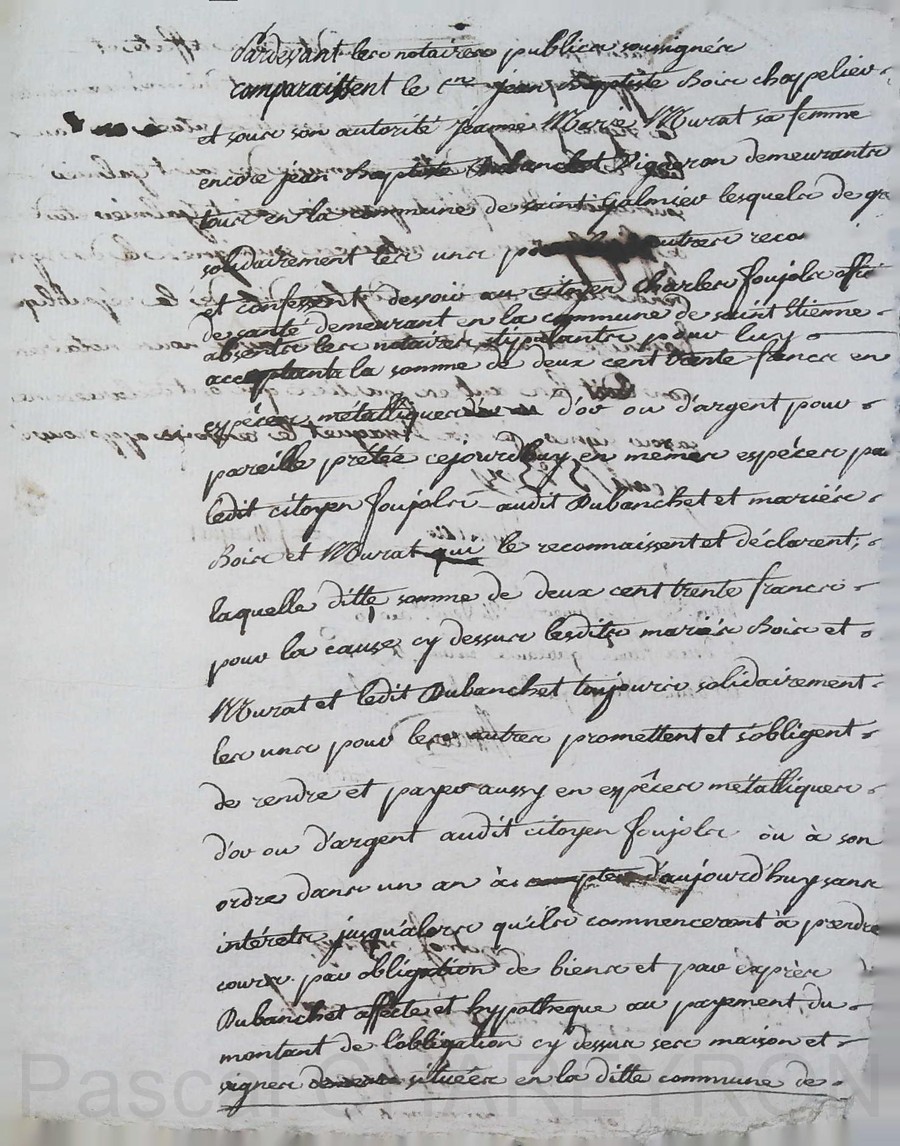 Pardevant les notaires publics soussignés
comparaissent le Cen jean Baptiste Boix chapelier
et sous son autorité jeanne Marie Murat sa femme
encore jean Baptiste Dubanchet Vigneron demeurants
tous en la commune de saint Galmier lesquels de g
solidairement les uns po autres reco
et confessent devoir au citoyen charles foujols offi
de santé demeurant en la commune de saint Etienne
absents les notaires stipulants pour luy
acceptants la somme de deux cent trente francs en
espéces métalliques d'or ou d'argent pour
pareille prétée cejourdhuy en mémes espéces pa
ledit citoyen foujols audit Dubanchet et mariés
Boix et Murat qui le reconnaissent et déclarent;
laquelle ditte somme de deux cent trente francs
pour la cause cy dessus lesdits mariés Boix et
Murat et ledit Dubanchet toujours solidairement
les uns pour les autres promettent et s'obligent
de rendre et payer aussy en espêces métalliques
d'or ou d'argent audit citoyen foujols òu à son
ordre dans un an à d'aujourd'huy sans
intérets jusqu'alors qu'ils commenceront à prendre
cours par obligation de biens et par exprès
Dubanchet affecte et hypotheque au payement du
montant de l'obligation cy dessus ses maison et
vignes situées en la ditte commune de
Pascal CHAREYRON